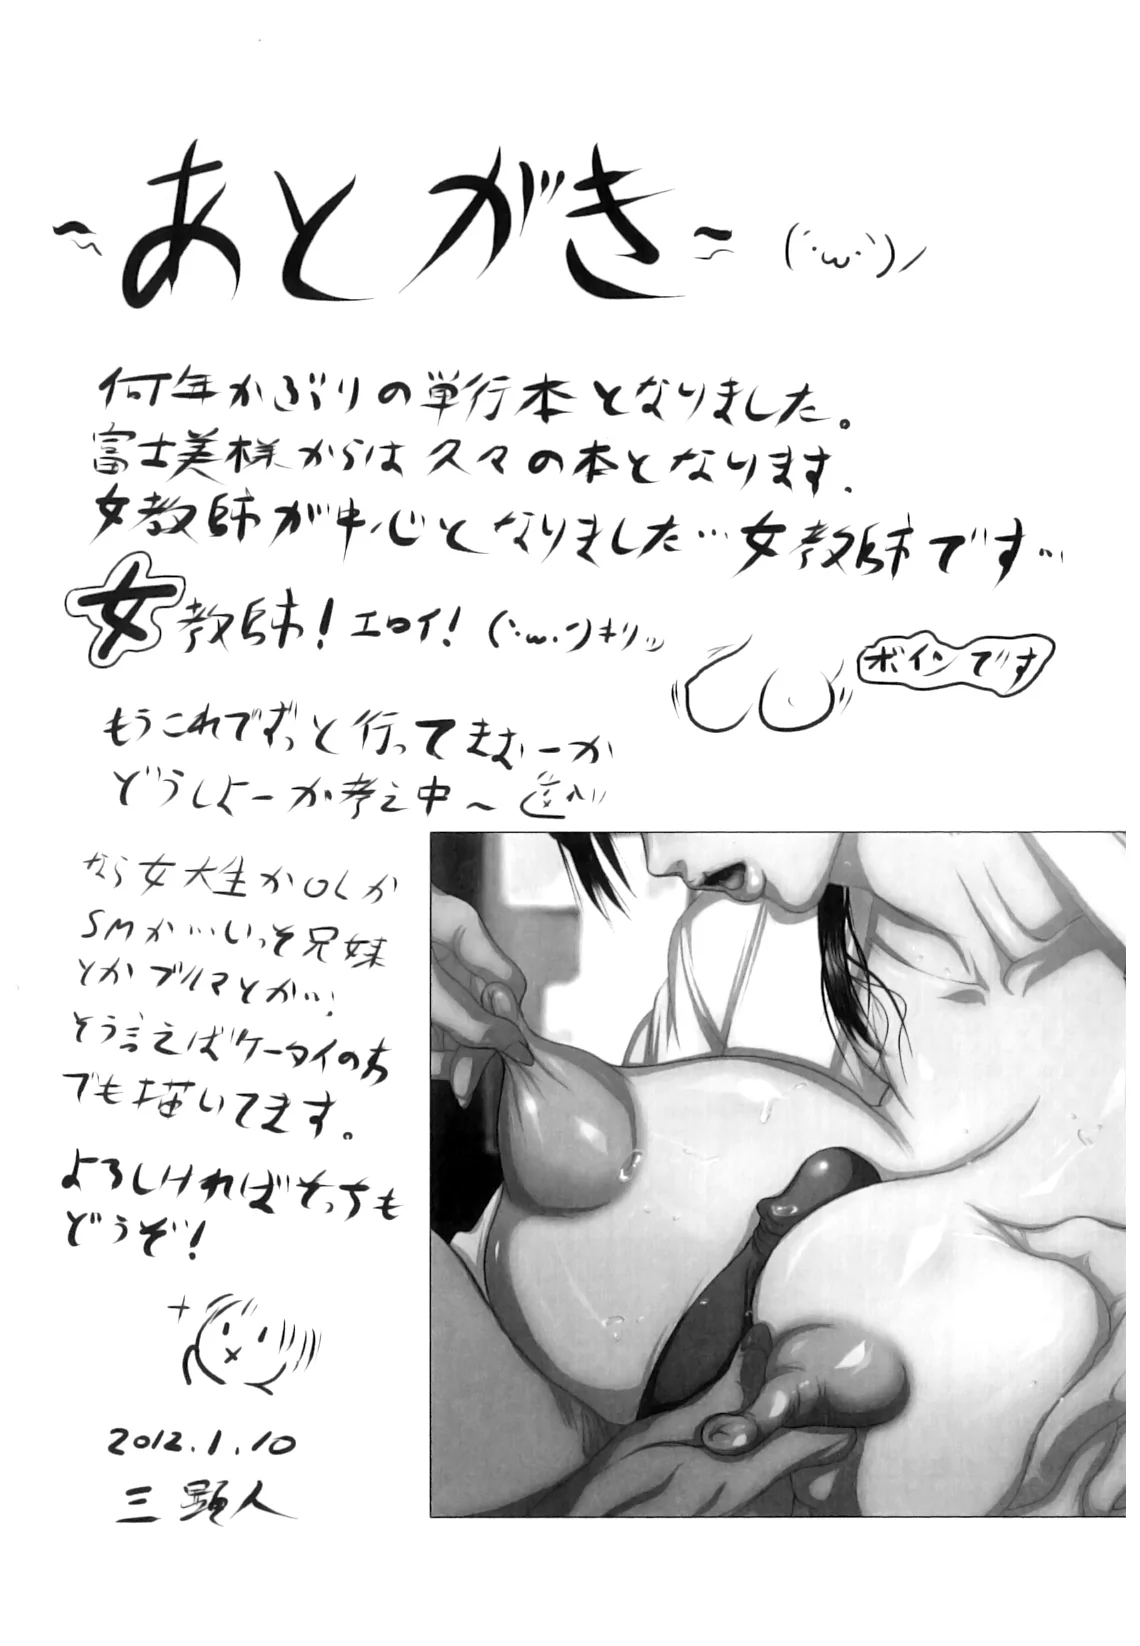 ～あとがき～ (´･ω･`)ノ
何年かぶりの単行本となりました。
富士美様からは久々の本となります.
女教師が中心となりました…女教師です…
女教師!エロイ!(`･ω･´)キリッ
ボインです
もうこれでずっと行ってきむーか
どうしよーか考え中～
なら女大生かOLか
SMか…いっそ兄妹
とかブルマとか…!
そう言えばケータイの方
でも描いてます。
よろしければそっちも
どうぞ!
2012.1.10
三顕人